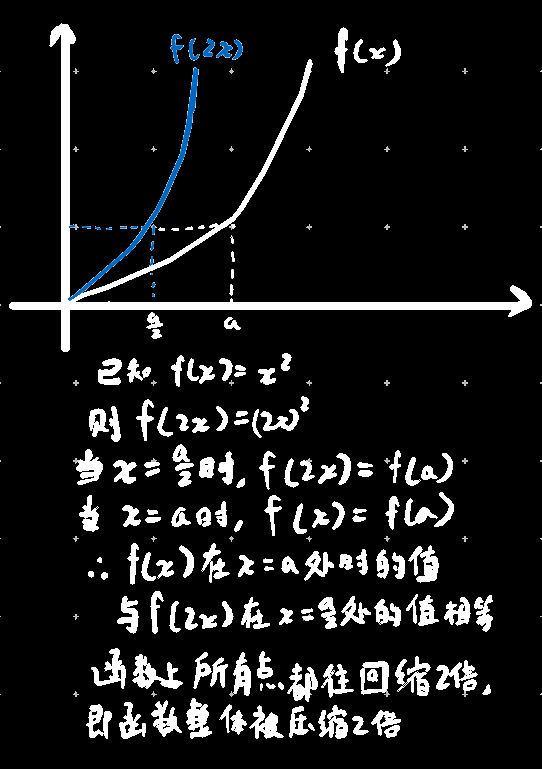 f(2x)
f(x)
a/2
a
已知 f(x)=x²
则 f(2x)=(2x)²
当 x=a/2时, f(2x)=f(a)
当 x=a时, f(x)=f(a)
∴ f(x)在x=a处时的值
与f(2x)在x=a/2处的值相等
函数上所有点都往回缩2倍,
即函数整体被压缩2倍